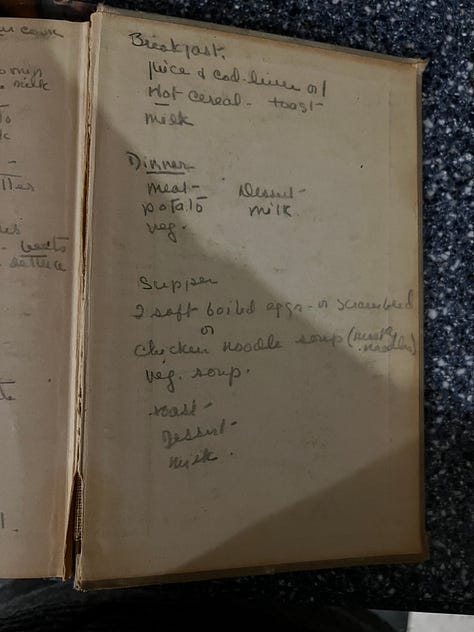 Breakfast.
juice & cod-liver oil
Hot cereal - toast
milk
Dinner
meat - Dessert -
potato milk
veg.
Supper
2 soft boiled eggs - or scrambled
or
chicken noodle soup (mostly noodles)
veg. soup.
toast -
Dessert -
milk.
milk
lettuce